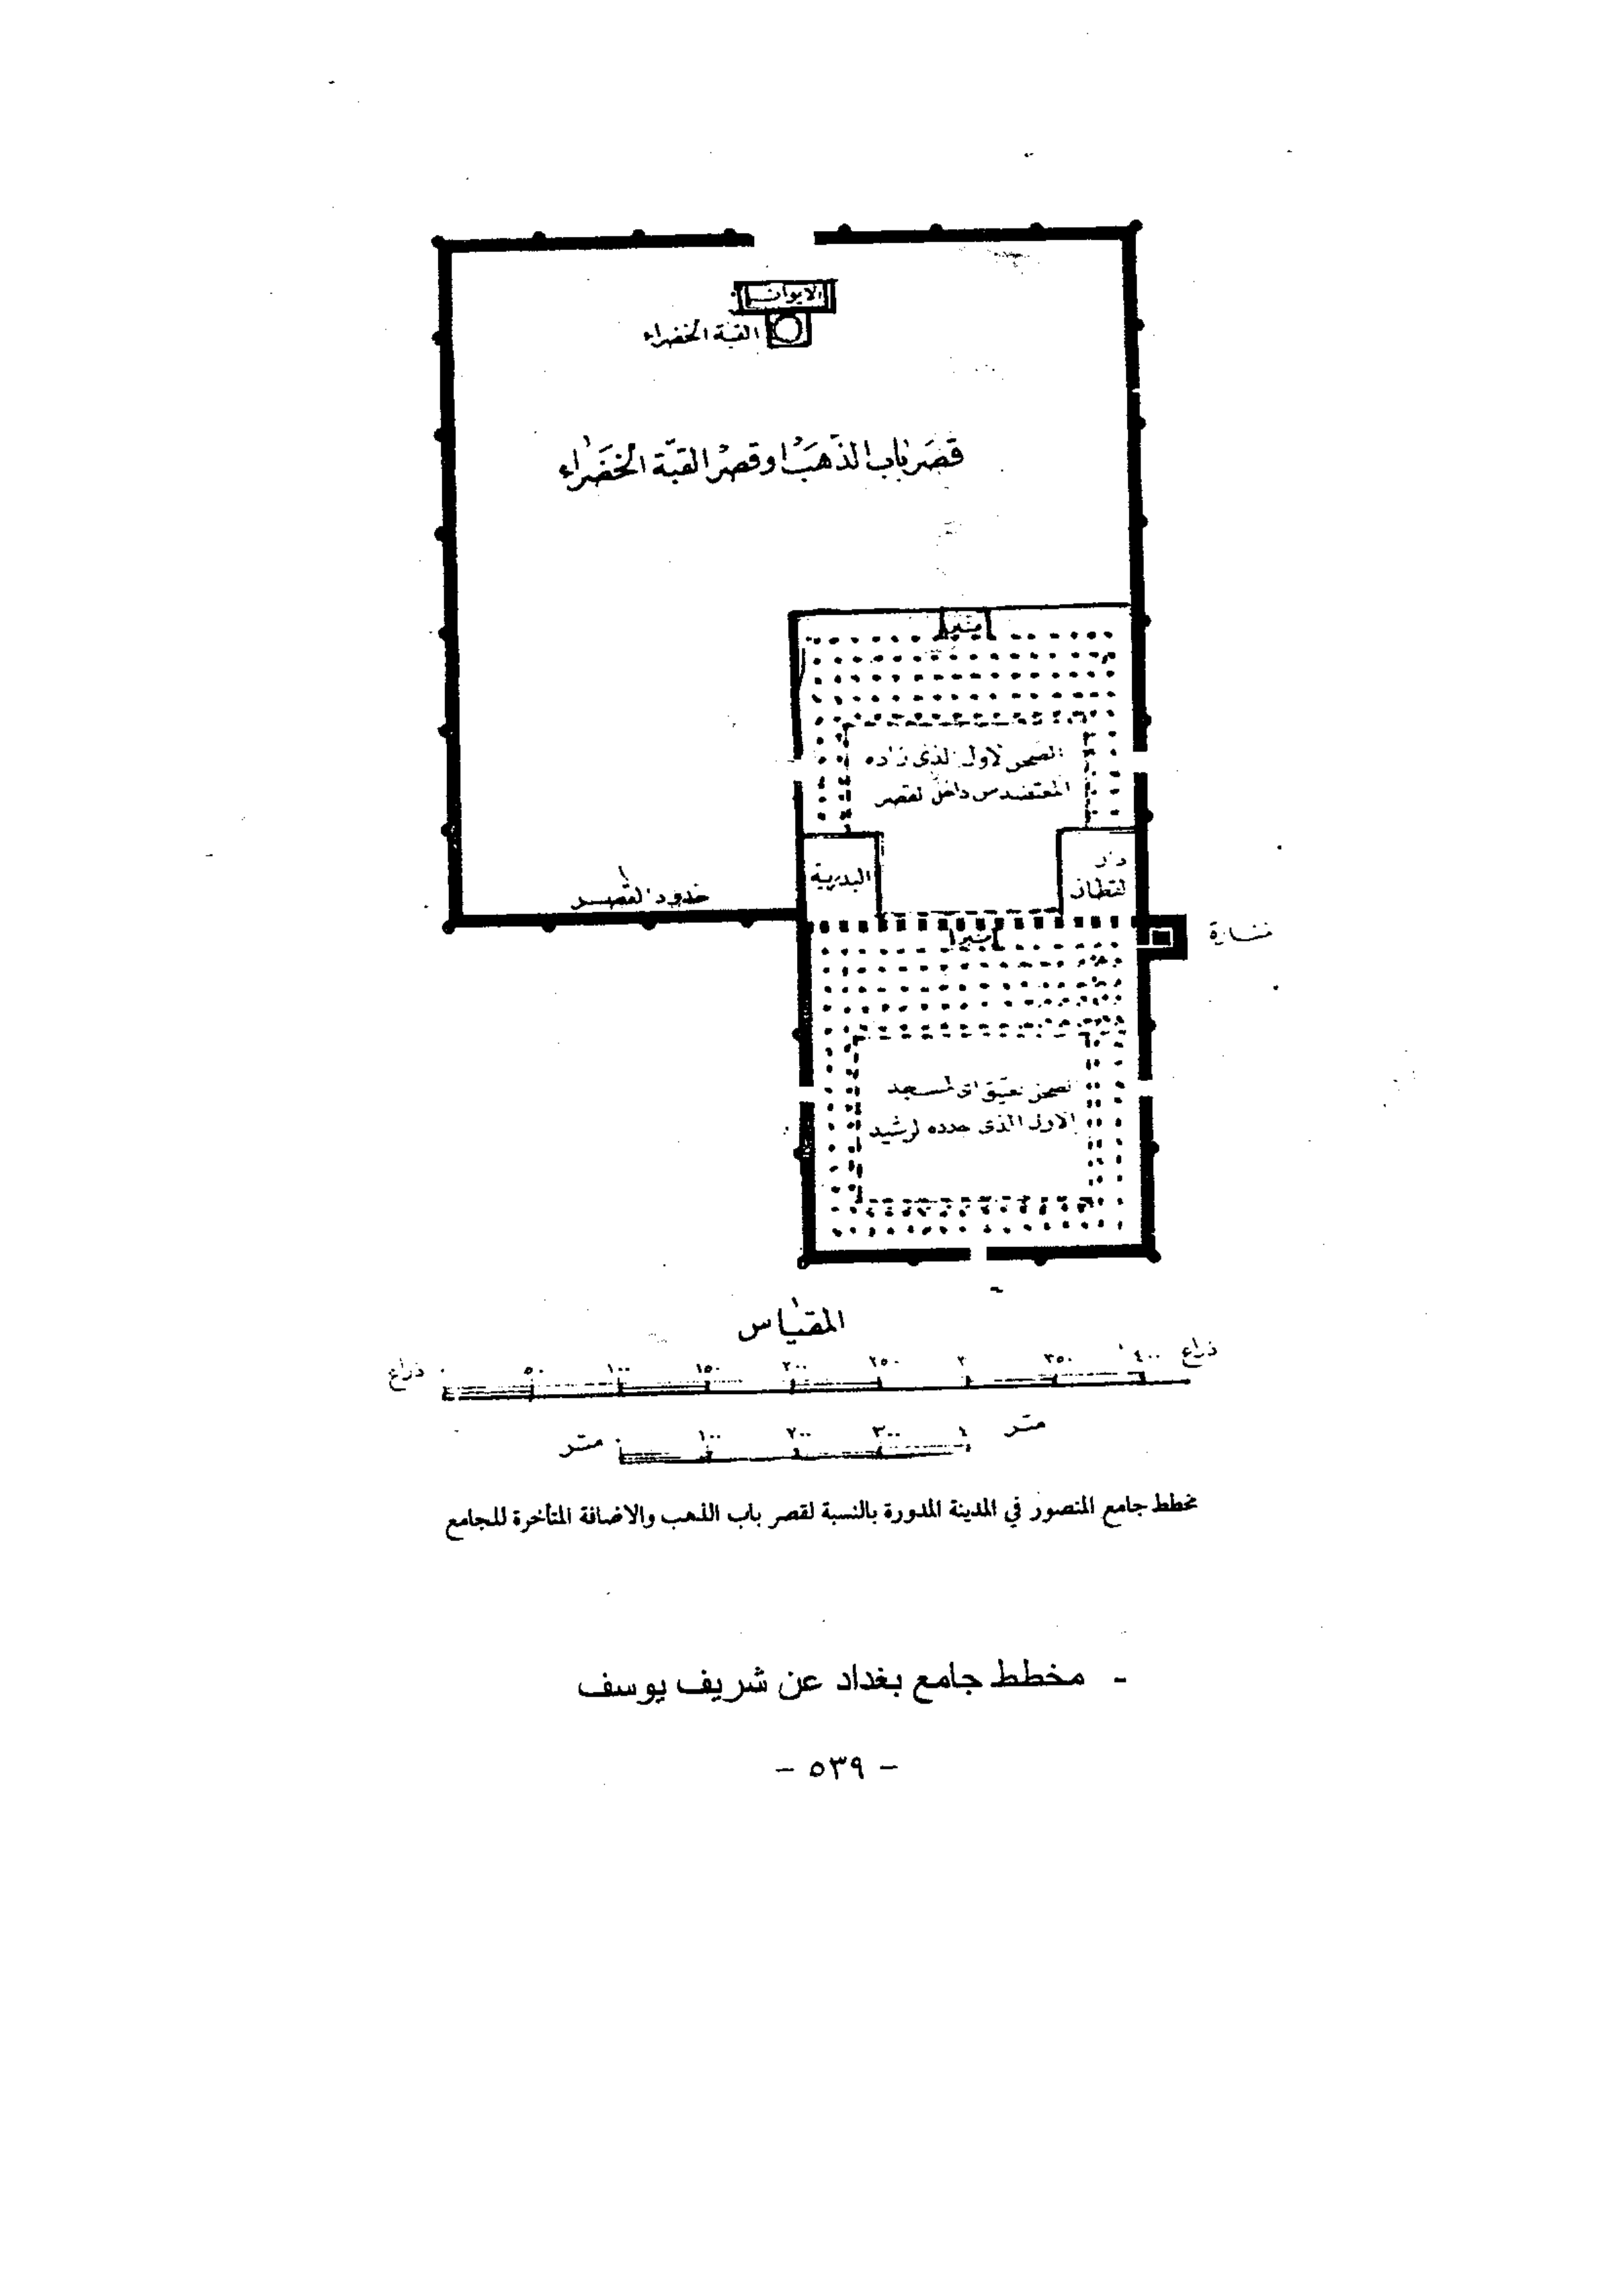 الايوان
القبة الخضراء
قصر باب الذهب وقصر القبة الخضراء
منبر
الصحن الاول الذي زاده
المعتضد من داخل القصر
البدرية
دار
القطان
حدود القصر
منارة
منبر
الصحن العتيق اي المسجد
الاول الذي جدده الرشيد
المقياس
ذراع ٠ ٥٠ ١٠٠ ١٥٠ ٢٠٠ ٢٥٠ ٣ ٣٥٠ ٤٠٠ ذراع
متر ٠ ١٠٠ ٢٠٠ ٣٠٠ ٤ متر
مخطط جامع المنصور في المدينة المدورة بالنسبة لقصر باب الذهب والاضافة المتأخرة للجامع
- مخطط جامع بغداد عن شريف يوسف
- ٥٣٩ -